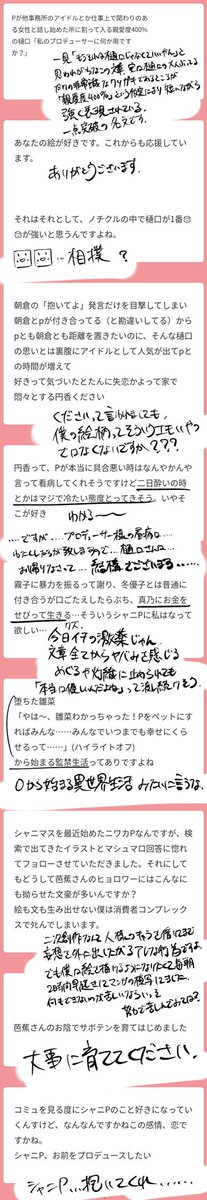 Pが他事務所のアイドルとか仕事上で関わりのあ
る女性と話し始めた所に割って入る親愛度400%
の樋口「私のプロデューサーに何か用です
か？」
一見「もうそんなの樋口じゃなくていいやん」と
思われがちな
「親愛度400%」という
強く表現されている
一点突破の名文です。
あなたの絵が好きです。これからも応援してい
ます。
ありがとうございます。
それはそれとして、ノクチルの中で樋口が1番
が強いと思うんですよね。
相撲？
朝倉の「抱いてよ」発言だけを目撃してしまい
朝倉とpが付き合ってる（と勘違いしてる）から
pとも朝倉とも距離を置きたいのに、そんな樋口
の思いとは裏腹にアイドルとして人気が出てpと
の時間が増えて
好きって気づいたとたんに失恋かよって家で
悶々とする円香ください
くださいって言われましても、
僕の絵柄ってそういうエモいやつ
ではなくないですか???
円香って、Pが本当に具合悪い時はなんやかんや
言って看病してくれそうですけど二日酔いの時
とかはマジで冷たい態度とってきそう。いやそ
こが好き
わかる〜
…ですが…プロデューサー様の看病は…
わたくしたちが致しますので…樋口さんは…
お帰りなさって…結構でございます……
霧子に暴力を振るって謝り、冬優子とは普通に
付き合うが口ごたえしたらぶち、真乃にお金を
せびって生きる…そういうシャニPに私はなって
欲しい…
クズ。
今日イチの激薬じゃん
文章全てからやべみを感じる
めぐるや灯織に止められても
「本当は優しい人だよね」って流し続けそう
堕ちた雛菜
「やは〜、雛菜わかっちゃった！Pをペットにす
ればみんな……みんなでいつまでも幸せにくら
せるって……」（ハイライトオフ）
から始まる監禁生活ってありですよね
0から始まる異世界生活みたいに言うな
シャニマスを最近始めたニワカPなんですが、検
索で出てきたイラストとマシュマロ回答に惚れ
てフォローさせていただきました。それにして
もどうして芭蕉さんのヒョロワーにはこんなに
も拗らせた文豪が多いんですか？
絵も文も生み出せない僕は消費者コンプレック
スで死んでしまいます。
二次創作なんて人様のキャラを借りてまで
妄想を外に出したがるアレな行為ですよ
でも僕は絵を描けるようになりたくて毎朝
2時間早起きしてマンガの模写してました。
何もできないのが苦しいなら、
芭蕉さんのお陰でサボテンを育てはじめました
大事に育ててください。
コミュを見る度にシャニPのこと好きになってい
くんすけど、なんなんですかねこの感情、恋で
すかね。
シャニP、お前をプロデュースしたい
シャニP…抱いてくれ……